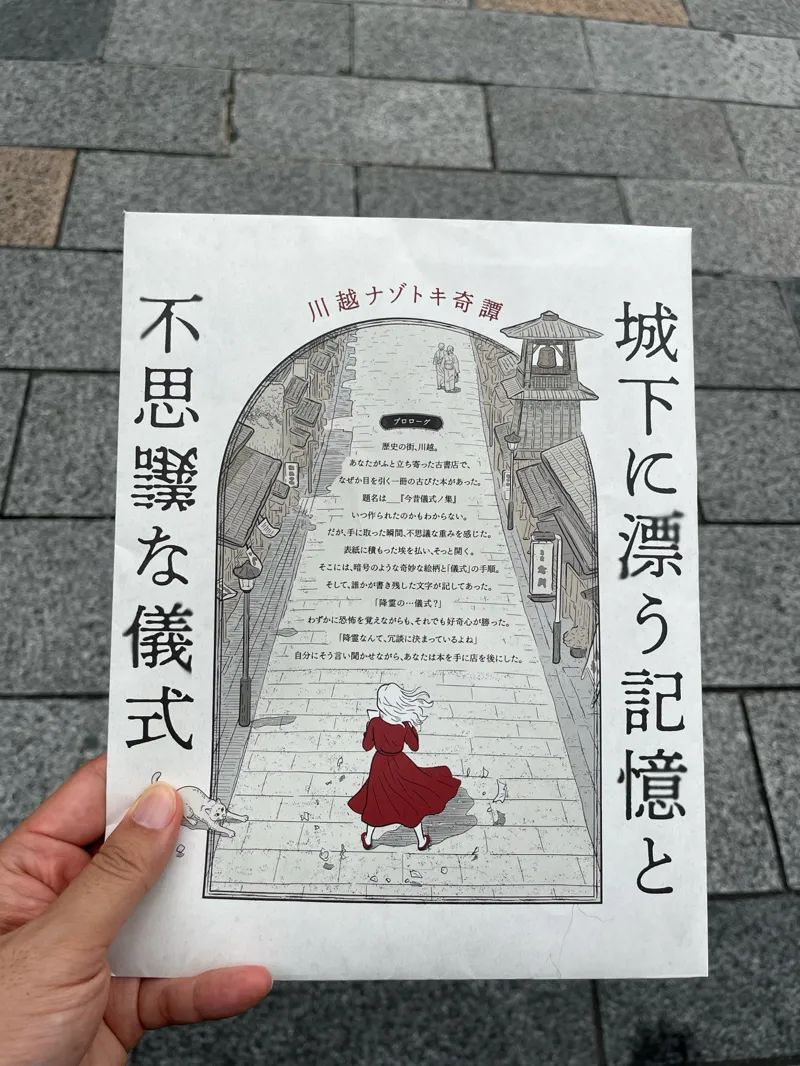 川越ナゾトキ奇譚
城下に漂う記憶と
不思議な儀式
プロローグ
歴史の街、川越。
あなたがふと立ち寄った古書店で、
なぜか目を引く一冊の古びた本があった。
題名は__『今昔儀式ノ集』
いつ作られたのかもわからない。
だが、手に取った瞬間、不思議な重みを感じた。
表紙に積もった埃を払い、そっと開く。
そこには、暗号のような奇妙な絵柄と「儀式」の手順。
そして、誰かが書き残した文字が記してあった。
「降霊の…儀式？」
わずかに恐怖を覚えながらも、それでも好奇心が勝った。
「降霊なんて、冗談に決まっているよね」
自分にそう言い聞かせながら、あなたは本を手に店を後にした。